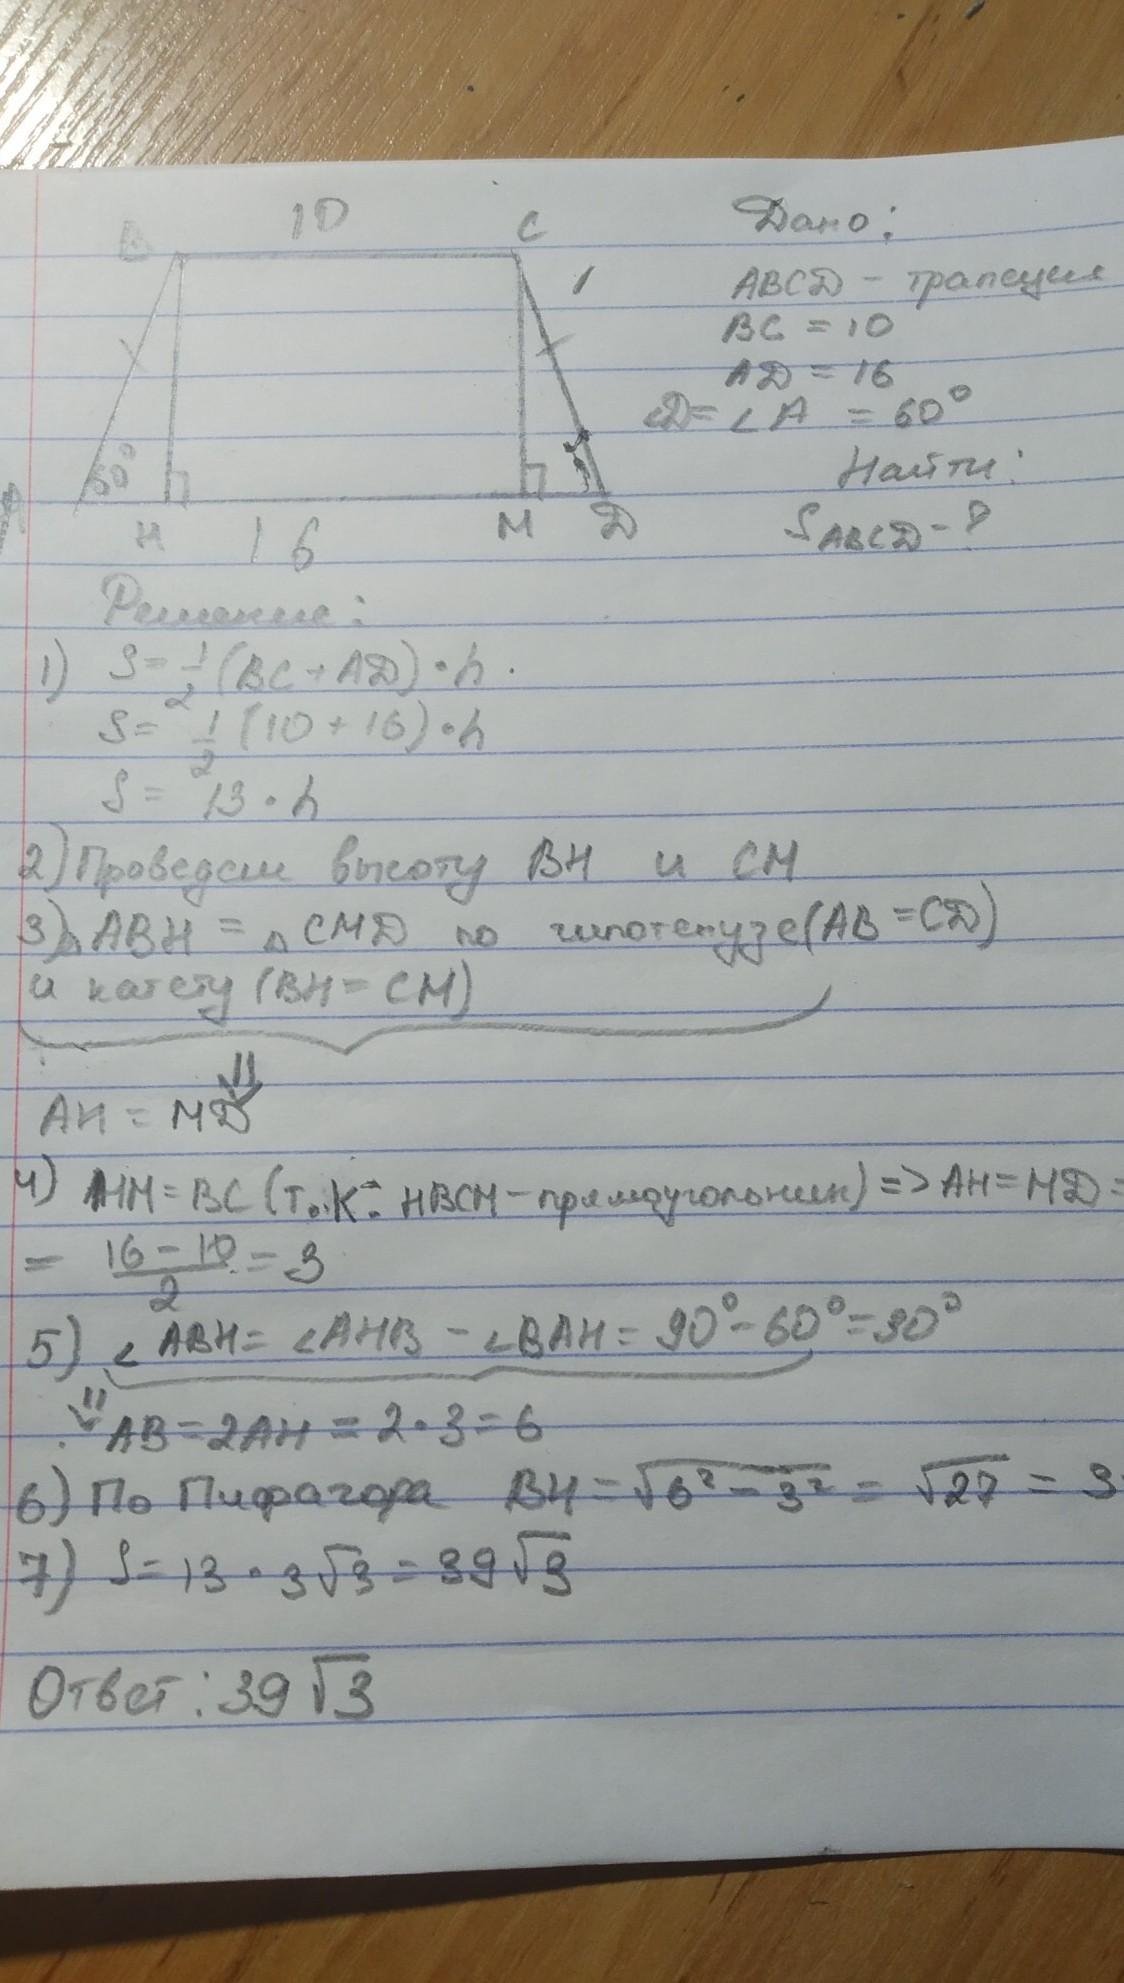 10
B C
Дано:
ABCD - трапеция
BC = 10
AD = 16
∠D = ∠A = 60°
Найти:
S ABCD - ?
60°
A H 16 M D
Решение:
1) S = 1/2 (BC + AD) · h.
S = 1/2 (10 + 16) · h
S = 13 · h
2) Проведем высоту BH и CM
3) △ABH = △CMD по гипотенузе (AB = CD)
и катету (BH = CM)
⇓
AH = MD
4) HM = BC (т.к. HBCM - прямоугольник) => AH = MD =
= (16 - 10)/2 = 3
5) ∠ABH = ∠AHB - ∠BAH = 90° - 60° = 30°
⇓ AB = 2AH = 2 · 3 = 6
6) По Пифагора BH = √(6² - 3²) = √27 = 3
7) S = 13 · 3√3 = 39√3
Ответ: 39√3